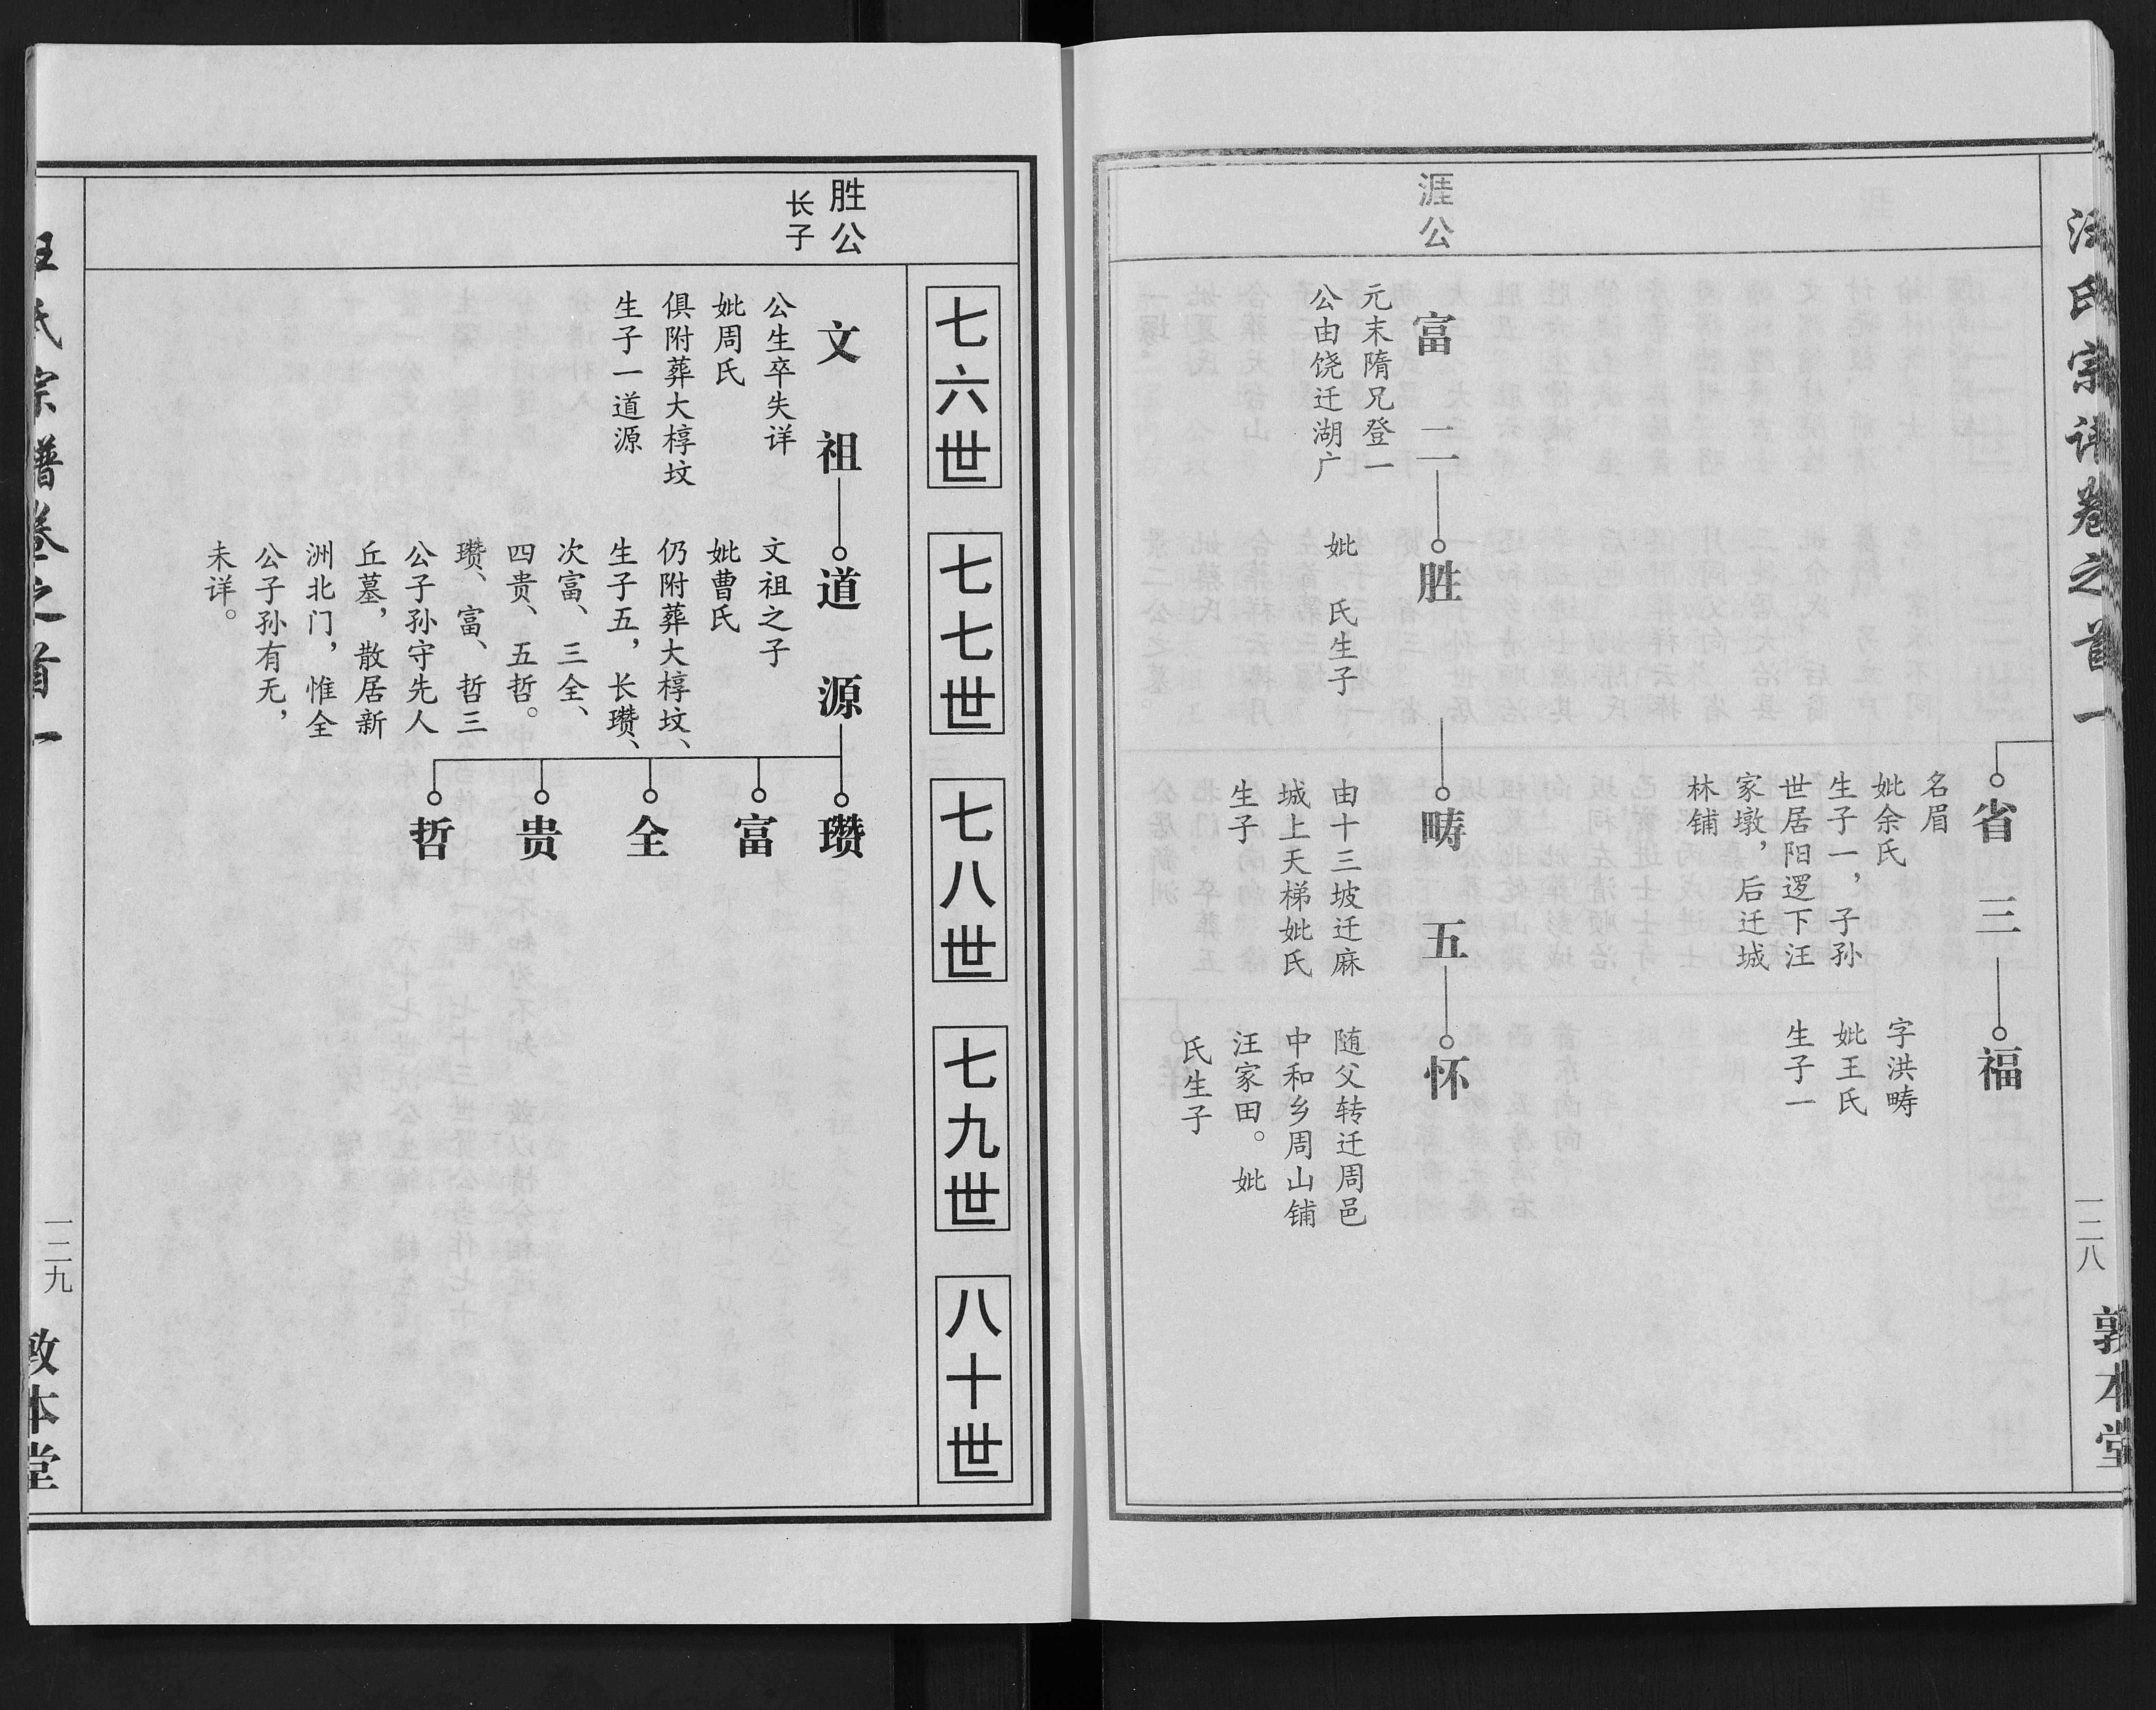 汪氏宗谱卷之首一
一二八
敦本堂
省三
名眉
妣余氏
生子一，子孙
世居阳逻下汪
家墩，后迁城
林铺
福
字洪畴
妣王氏
生子一
涯公
富二
元末隋兄登一
公由饶迁湖广
胜
妣　氏生子
畴五
由十三坡迁麻
城上天梯妣氏
生子
怀
随父转迁周邑
中和乡周山铺
汪家田。妣
氏生子
七六世
七七世
七八世
七九世
八十世
胜公
长子
文祖
公生卒失详
妣周氏
俱附葬大椁坟
生子一道源
道源
文祖之子
妣曹氏
仍附葬大椁坟、
生子五，长瓒、
次富、三全、
四贵、五哲。
瓒、富、哲三
公子孙守先人
丘墓，散居新
洲北门，惟全
公子孙有无，
未详。
瓒
富
全
贵
哲
汪氏宗谱卷之首一
一二九
敦本堂